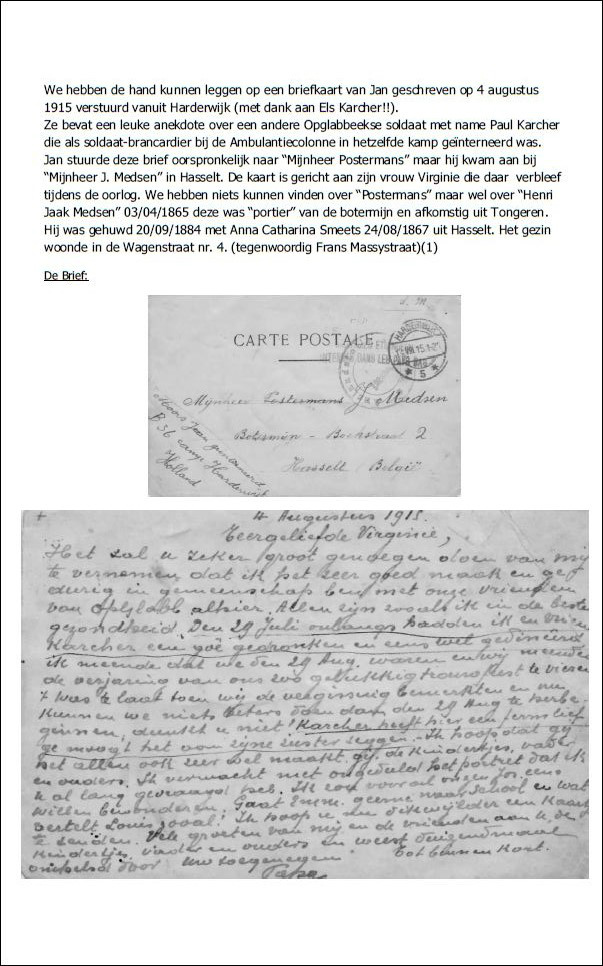 We hebben de hand kunnen leggen op een briefkaart van Jan geschreven op 4 augustus
1915 verstuurd vanuit Harderwijk (met dank aan Els Karcher!!).
Ze bevat een leuke anekdote over een andere Opglabbeekse soldaat met name Paul Karcher
die als soldaat-brancardier bij de Ambulantiecolonne in hetzelfde kamp geïnterneerd was.
Jan stuurde deze brief oorspronkelijk naar “Mijnheer Postermans” maar hij kwam aan bij
“Mijnheer J. Medsen” in Hasselt. De kaart is gericht aan zijn vrouw Virginie die daar verbleef
tijdens de oorlog. We hebben niets kunnen vinden over “Postermans” maar wel over “Henri
Jaak Medsen” 03/04/1865 deze was “portier” van de botermijn en afkomstig uit Tongeren.
Hij was gehuwd 20/09/1884 met Anna Catharina Smeets 24/08/1867 uit Hasselt. Het gezin
woonde in de Wagenstraat nr. 4. (tegenwoordig Frans Massystraat)(1)
De Brief:
S. M.
CARTE POSTALE
HARDERWIJK
Mijnheer Postermans J. Medsen
2
Hasselt België
B 36 camp Harderwijk
Holland
4 Augustus 1915.
Teergeliefde Virginie,
Het zal u zeker groot genoegen doen van mij
te vernemen dat ik het zeer goed maak en ge
durig in gemeenschap ben met onze vrienden
van Opglabb alhier. Allen zijn zooals ik in de beste
gezondheid. Den 29 Juli onlangs hadden ik en vriend
Karcher een goê gedronken en eens wel gedineerd
ik meende dat we den 29 Aug. waren en wij meenden
de verjaring van ons zoo gelukkig trouwfeest te vieren
't was te laat toen wij de vergissing bemerkten en nu
kunnen we niets beters doen dan den 29 Aug te herbe
ginnen, dunkt u niet! Karcher heeft hier een ferm lief
ge moogt het aan zijne zuster zeggen. Ik hoop dat gij
het allen ook zeer wel maakt, gij, de kindertjes, vader
en ouders. Ik verwacht met ongeduld het portret dat ik
u al lang gevraagd heb. Ik zou vooral onzen Jos eens
willen bewonderen. Gaat Emm. geerne naar school en wat
vertelt Louis zooal! Ik hoop u nu dikwijlder een kaart
te zenden. Vele groeten van mij en de vrienden aan u, de
kindertjes, vader en ouders en weest duizendmaal
omhelsd door uw toegenegen Tot binnen kort.
Papa